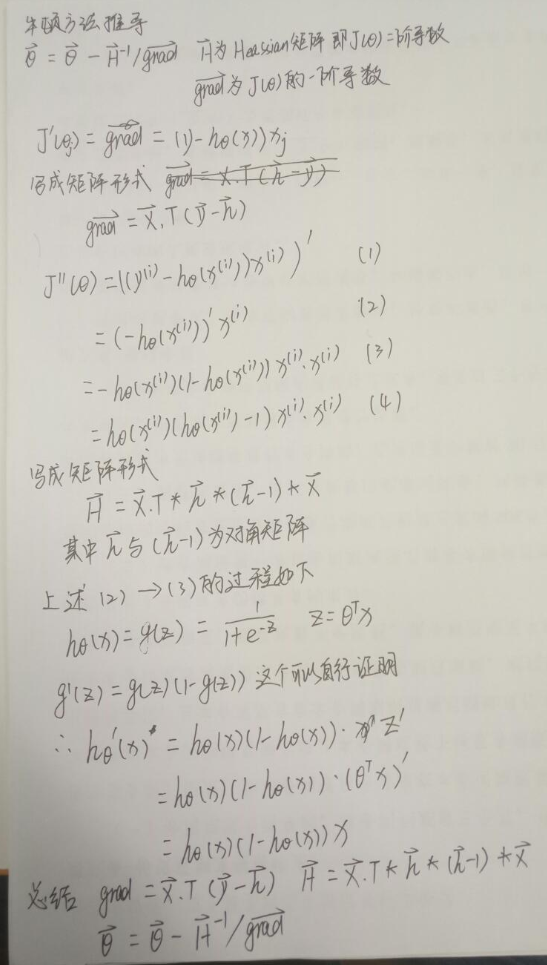 牛顿方法推导
θ⃗ = θ⃗ - H⃗⁻¹/grad⃗ H⃗为Heassian矩阵 即J(θ)二阶导数
grad⃗为J(θ)的一阶导数
J'(θj) = grad⃗ = (y - hθ(x))xj
写成矩阵形式 grad⃗ = X.T(h⃗ - y⃗)
grad⃗ = X⃗.T(y⃗ - h⃗)
J''(θ) = ((y⁽ⁱ⁾ - hθ(x⁽ⁱ⁾))x⁽ⁱ⁾)' (1)
= (-hθ(x⁽ⁱ⁾))'x⁽ⁱ⁾ (2)
= -hθ(x⁽ⁱ⁾)(1-hθ(x⁽ⁱ⁾))x⁽ⁱ⁾·x⁽ⁱ⁾ (3)
= hθ(x⁽ⁱ⁾)(hθ(x⁽ⁱ⁾)-1)x⁽ⁱ⁾·x⁽ⁱ⁾ (4)
写成矩阵形式
H⃗ = X⃗.T * h⃗ * (h⃗-1) * X⃗
其中h⃗与(h⃗-1)为对角矩阵
上述(2)→(3)的过程如下
hθ(x) = g(z) = 1/(1+e⁻ᶻ) z = θᵀx
g'(z) = g(z)(1-g(z)) 这个可以自行证明
∴ hθ'(x) = hθ(x)(1-hθ(x))·z'
= hθ(x)(1-hθ(x))·(θᵀx)'
= hθ(x)(1-hθ(x))x
总结 grad = X⃗.T(y⃗-h⃗) H⃗ = X⃗.T * h⃗ * (h⃗-1) * X⃗
θ⃗ = θ⃗ - H⃗⁻¹/grad⃗